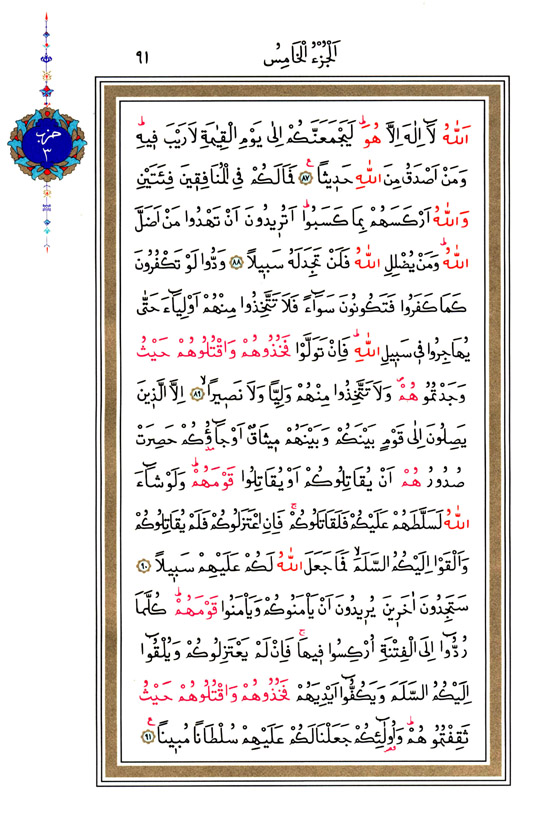 اَلْجُزْءُ الْخَامِسُ
٩١
حزب
٣
اَللّٰهُ لَٓا اِلٰهَ اِلَّا هُوَۜ لَيَجْمَعَنَّكُمْ اِلٰى يَوْمِ الْقِيٰمَةِ لَا رَيْبَ فٖيهِۜ
وَمَنْ اَصْدَقُ مِنَ اللّٰهِ حَدٖيثاًۚ ﴿٨٧﴾ فَمَا لَكُمْ فِي الْمُنَافِقٖينَ فِئَتَيْنِ
وَاللّٰهُ اَرْكَسَهُمْ بِمَا كَسَبُواۜ اَتُرٖيدُونَ اَنْ تَهْدُوا مَنْ اَضَلَّ
اللّٰهُۜ وَمَنْ يُضْلِلِ اللّٰهُ فَلَنْ تَجِدَ لَهُ سَبٖيلاً ﴿٨٨﴾ وَدُّوا لَوْ تَكْفُرُونَ
كَمَا كَفَرُوا فَتَكُونُونَ سَوَٓاءً فَلَا تَتَّخِذُوا مِنْهُمْ اَوْلِيَٓاءَ حَتّٰى
يُهَاجِرُوا فٖي سَبٖيلِ اللّٰهِۜ فَاِنْ تَوَلَّوْا فَخُذُوهُمْ وَاقْتُلُوهُمْ حَيْثُ
وَجَدْتُمُوهُمْۖ وَلَا تَتَّخِذُوا مِنْهُمْ وَلِياًّ وَلَا نَصٖيراًۙ ﴿٨٩﴾ اِلَّا الَّذٖينَ
يَصِلُونَ اِلٰى قَوْمٍ بَيْنَكُمْ وَبَيْنَهُمْ مٖيثَاقٌ اَوْ جَٓاؤُ۫كُمْ حَصِرَتْ
صُدُورُهُمْ اَنْ يُقَاتِلُوكُمْ اَوْ يُقَاتِلُوا قَوْمَهُمْۜ وَلَوْ شَٓاءَ
اللّٰهُ لَسَلَّطَهُمْ عَلَيْكُمْ فَلَقَاتَلُوكُمْۚ فَاِنِ اعْتَزَلُوكُمْ فَلَمْ يُقَاتِلُوكُمْ
وَاَلْقَوْا اِلَيْكُمُ السَّلَمَۙ فَمَا جَعَلَ اللّٰهُ لَكُمْ عَلَيْهِمْ سَبٖيلاً ﴿٩٠﴾
سَتَجِدُونَ اٰخَرٖينَ يُرٖيدُونَ اَنْ يَأْمَنُوكُمْ وَيَأْمَنُوا قَوْمَهُمْۜ كُلَّمَا
رُدُّٓوا اِلَى الْفِتْنَةِ اُرْكِسُوا فٖيهَاۚ فَاِنْ لَمْ يَعْتَزِلُوكُمْ وَيُلْقُٓوا
اِلَيْكُمُ السَّلَمَ وَيَكُفُّٓوا اَيْدِيَهُمْ فَخُذُوهُمْ وَاقْتُلُوهُمْ حَيْثُ
ثَقِفْتُمُوهُمْۜ وَاُو۬لٰٓئِكُمْ جَعَلْنَا لَكُمْ عَلَيْهِمْ سُلْطَاناً مُبٖيناًۚ ﴿٩١﴾